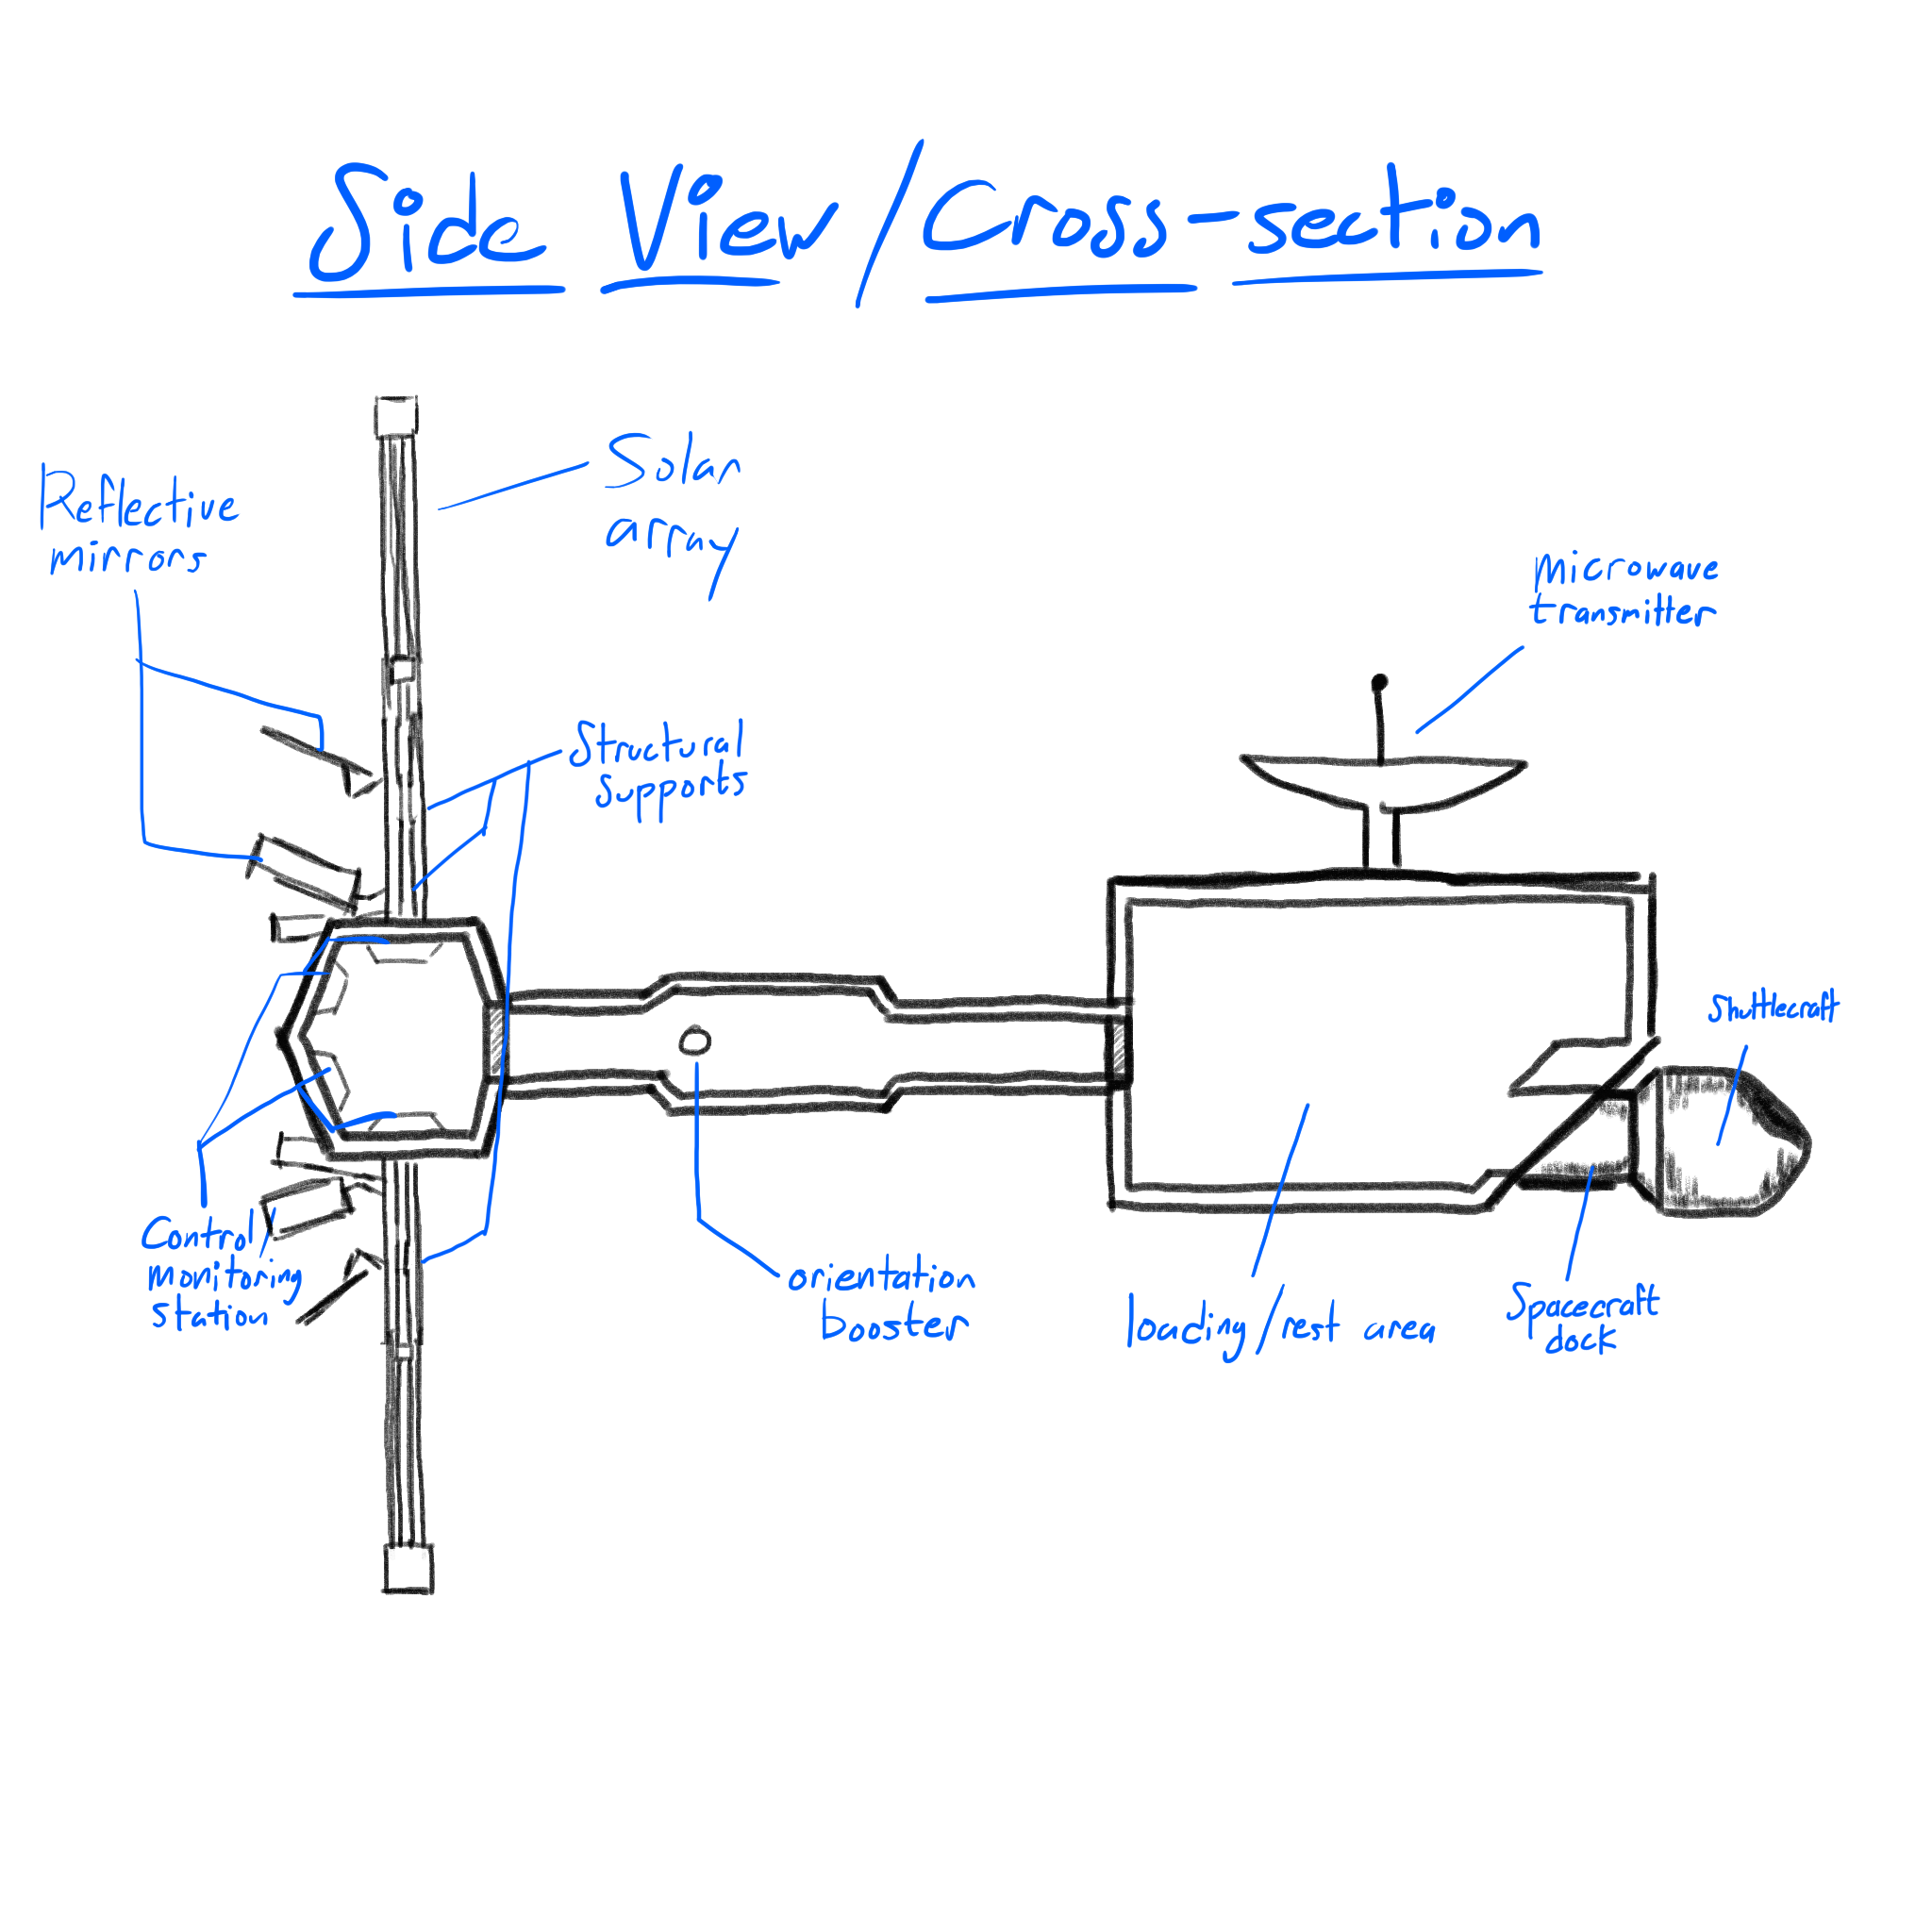 Side View/Cross-section
Reflective
mirrors
Solar
array
Microwave
transmitter
Structural
supports
Shuttlecraft
Control/
monitoring
station
orientation
booster
loading/rest area
Spacecraft
dock